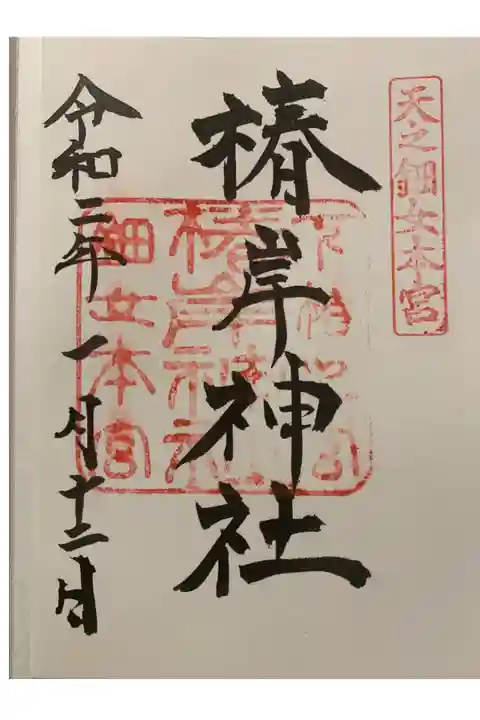 天之鈿女本宮
椿岸神社
令和二年一月十二日
椿岸神社
鈿女本宮